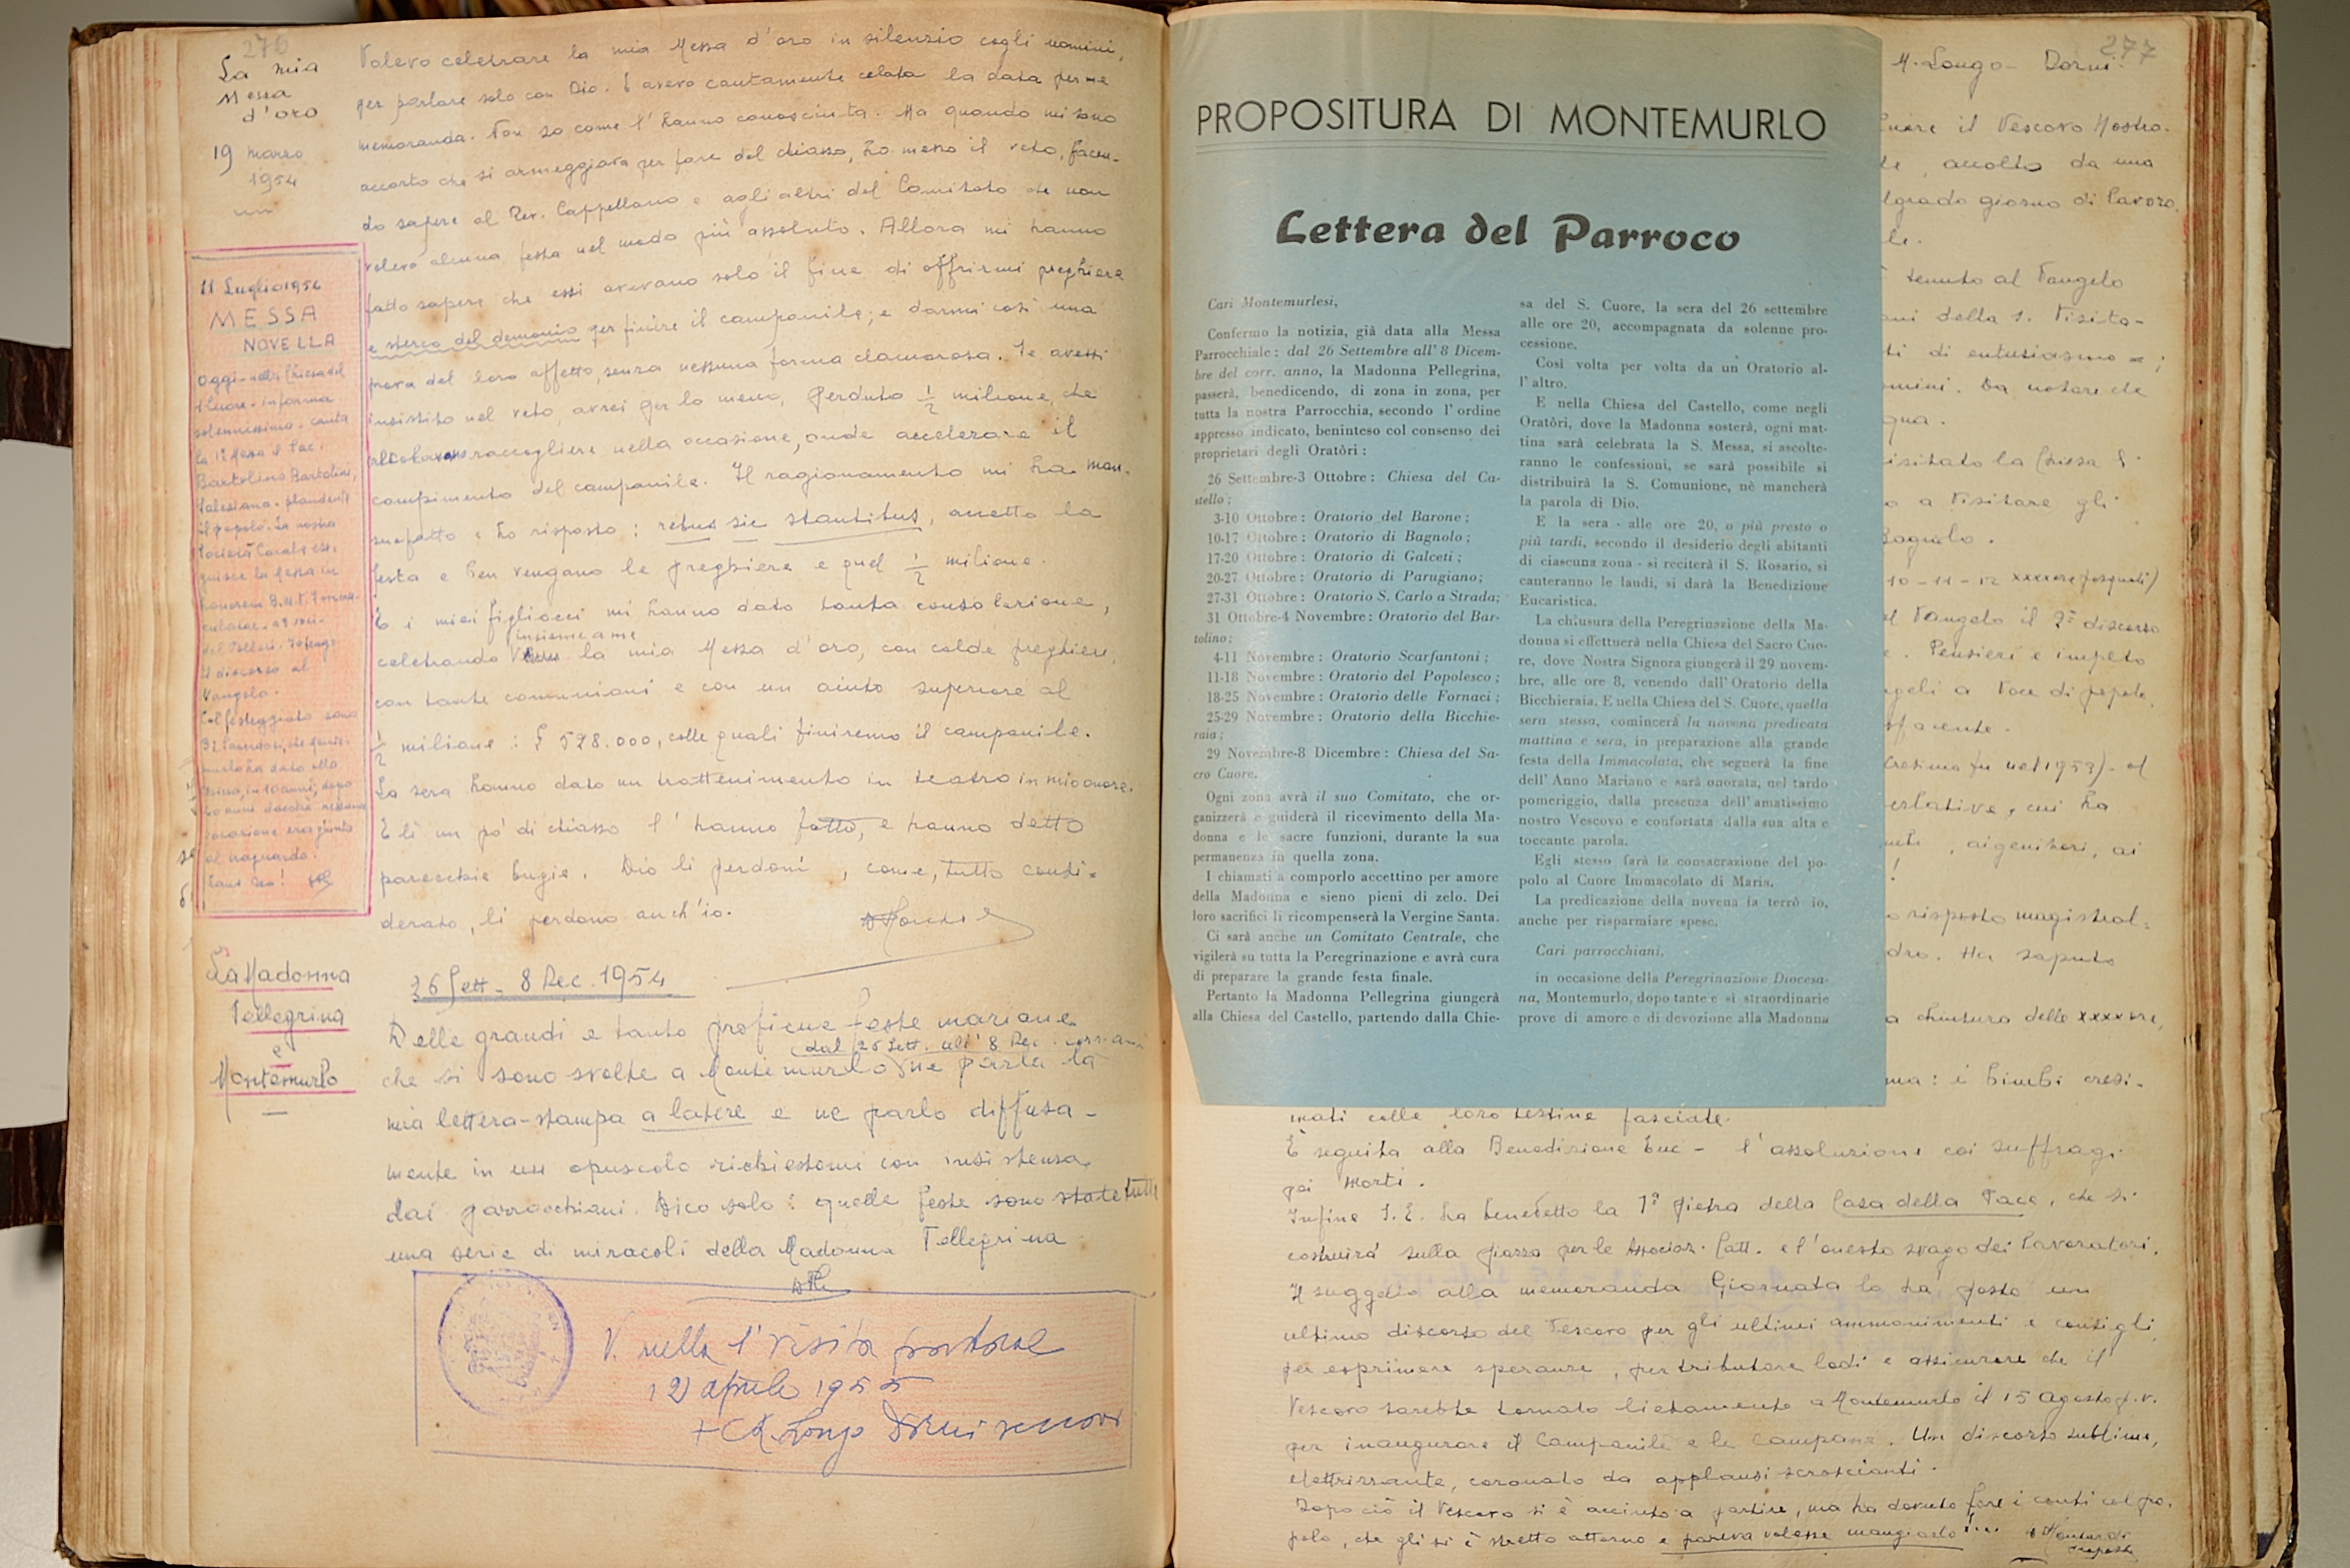 276
La mia
Messa
d'oro
19 marzo
1954
Volevo celebrare la mia Messa d'oro in silenzio cogli uomini,
per parlare solo con Dio. E avevo cautamente celata la data per me
memoranda. Non so come l'hanno conosciuta. Ma quando mi sono
accorto che si armeggiava per fare del chiasso, ho messo il veto, facen-
do sapere al Rev. Cappellano e agli altri del Comitato che non
volevo alcuna festa nel modo più assoluto. Allora mi hanno
fatto sapere che essi avevano solo il fine di offrirmi preghiere
e sterco del demonio per finire il campanile; e darmi così una
prova del loro affetto, senza nessuna forma clamorosa. Se avessi
insistito nel veto, avrei per lo meno, perduto ½ milione, che
raccogliere nella occasione, onde accelerare il
compimento del campanile. Il ragionamento mi ha man-
suefatto e ho risposto: rebus sic stantibus, accetto la
festa e ben vengano le preghiere e quel ½ milione.
E i miei figliocci mi hanno dato tanta consolazione,
insieme a me
celebrando la mia Messa d'oro, con calde preghiere,
con tante comunioni e con un aiuto superiore al
½ milione: £ 528.000, colle quali finiremo il campanile.
La sera hanno dato un trattenimento in teatro in mio onore.
E lì un pò di chiasso l'hanno fatto, e hanno detto
parecchie bugie. Dio li perdoni, come, tutto consi-
derato, li perdono anch'io.
11 Luglio 1954
MESSA
NOVELLA
Oggi - nella Chiesa del
S. Cuore - in forma
solennissima - canta
la 1ª Messa il Sac.
Bartolino Bartolini,
Salesiano - plaudente
il popolo. La nostra
Società Corale ese-
guisce la Messa in
honorem B.M.V. Imma-
culatae - a 3 voci -
del Vittori. Io tengo
il discorso al
Vangelo.
Col festeggiato sono
al traguardo.
La Madonna
Pellegrina
e
Montemurlo
26 Sett - 8 Dec. 1954
Delle grandi e tanto proficue feste mariane
(dal 26 Sett. all' 8 Dec.
che si sono svolte a Montemurlo ne parla la
mia lettera-stampa a latere e ne parlo diffusa-
mente in un opuscolo richiestomi con insistenza
dai parrocchiani. Dico solo: quelle feste sono state tutte
una serie di miracoli della Madonna Pellegrina
V. nella 1ª Visita pastorale
12 aprile 1955
277
M. Longo - Dorni.
PROPOSITURA DI MONTEMURLO
Lettera del Parroco
Cari Montemurlesi,
Confermo la notizia, già data alla Messa
Parrocchiale: dal 26 Settembre all' 8 Dicem-
bre del corr. anno, la Madonna Pellegrina,
passerà, benedicendo, di zona in zona, per
tutta la nostra Parrocchia, secondo l'ordine
appresso indicato, beninteso col consenso dei
proprietari degli Oratôri:
26 Settembre-3 Ottobre: Chiesa del Ca-
stello;
3-10 Ottobre: Oratorio del Barone;
10-17 Ottobre: Oratorio di Bagnolo;
17-20 Ottobre: Oratorio di Galceti;
20-27 Ottobre: Oratorio di Parugiano;
27-31 Ottobre: Oratorio S. Carlo a Strada;
31 Ottobre-4 Novembre: Oratorio del Bar-
tolino;
4-11 Novembre: Oratorio Scarfantoni;
11-18 Novembre: Oratorio del Popolesco;
18-25 Novembre: Oratorio delle Fornaci;
25-29 Novembre: Oratorio della Bicchie-
raia;
29 Novembre-8 Dicembre: Chiesa del Sa-
cro Cuore.
Ogni zona avrà il suo Comitato, che or-
ganizzerà e guiderà il ricevimento della Ma-
donna e le sacre funzioni, durante la sua
permanenza in quella zona.
I chiamati a comporlo accettino per amore
della Madonna e sieno pieni di zelo. Dei
loro sacrifici li ricompenserà la Vergine Santa.
Ci sarà anche un Comitato Centrale, che
vigilerà su tutta la Peregrinazione e avrà cura
di preparare la grande festa finale.
Pertanto la Madonna Pellegrina giungerà
alla Chiesa del Castello, partendo dalla Chie-
sa del S. Cuore, la sera del 26 settembre
alle ore 20, accompagnata da solenne pro-
cessione.
Così volta per volta da un Oratorio al-
l'altro.
E nella Chiesa del Castello, come negli
Oratôri, dove la Madonna sosterà, ogni mat-
tina sarà celebrata la S. Messa, si ascolte-
ranno le confessioni, se sarà possibile si
distribuirà la S. Comunione, nè mancherà
la parola di Dio.
E la sera - alle ore 20, o più presto o
più tardi, secondo il desiderio degli abitanti
di ciascuna zona - si reciterà il S. Rosario, si
canteranno le laudi, si darà la Benedizione
Eucaristica.
La chiusura della Peregrinazione della Ma-
donna si effettuerà nella Chiesa del Sacro Cuo-
re, dove Nostra Signora giungerà il 29 novem-
bre, alle ore 8, venendo dall'Oratorio della
Bicchieraia. E nella Chiesa del S. Cuore, quella
sera stessa, comincerà la novena predicata
mattina e sera, in preparazione alla grande
festa della Immacolata, che segnerà la fine
dell'Anno Mariano e sarà onorata, nel tardo
pomeriggio, dalla presenza dell'amatissimo
nostro Vescovo e confortata dalla sua alta e
toccante parola.
Egli stesso farà la consacrazione del po-
polo al Cuore Immacolato di Maria.
La predicazione della novena la terrò io,
anche per risparmiare spese.
Cari parrocchiani,
in occasione della Peregrinazione Diocesa-
na, Montemurlo, dopo tante e sì straordinarie
prove di amore e di devozione alla Madonna
il Vescovo Nostro.
accolto da una
giorno di lavoro.
tenuto al Vangelo
della S. Visita-
di entusiasmo
Da notare che
visitato la Chiesa
a visitare gli
Bagnolo.
10-11-12
Vangelo il 2º discorso
Pensieri e impeto
a voce di popolo
nel 1953) - al
cui ha
ai genitori, ai
risposto magistral-
Ha saputo
chiusura delle xxxx ore,
i bimbi cresi-
mati colle loro testine fasciate.
È seguita alla Benedizione Euc - l'assoluzione coi suffragi
pei Morti.
Infine S.E. ha benedetto la 1ª pietra della Casa della Pace, che si
costruirà sulla piazza per le Associaz. Catt. e l'onesto svago dei lavoratori.
Il suggello alla memoranda Giornata lo ha posto un
ultimo discorso del Vescovo per gli ultimi ammonimenti e consigli
per esprimere speranze, per tributare lodi e assicurare che il
Vescovo sarebbe tornato lietamente a Montemurlo il 15 Agosto p.v.
per inaugurare il Campanile e le campane. Un discorso sublime,
elettrizzante, coronato da applausi scroscianti.
Dopo ciò il Vescovo si è accinto a partire, ma ha dovuto fare i conti col po-
polo, che gli si è stretto attorno e pareva volesse mangiarlo!...